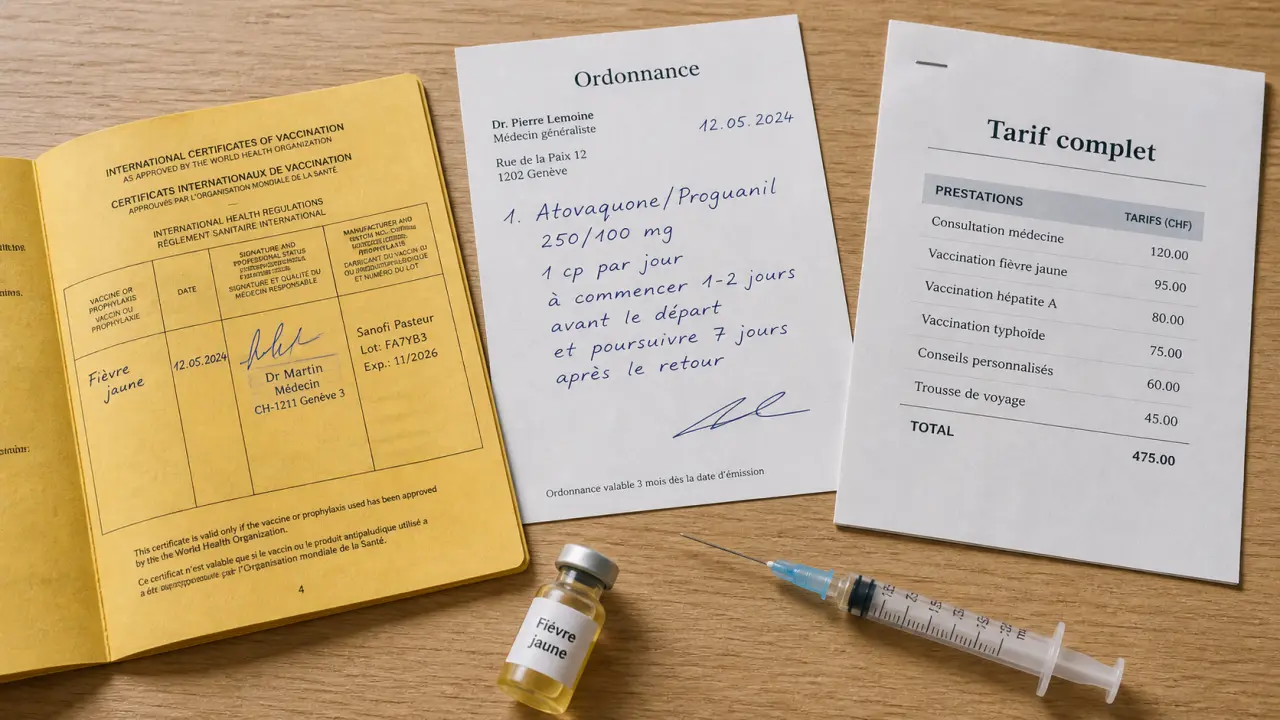 INTERNATIONAL CERTIFICATES OF VACCINATION
AS APPROVED BY THE WORLD HEALTH ORGANIZATION
CERTIFICATS INTERNATIONAUX DE VACCINATION
APPROUVÉS PAR L'ORGANISATION MONDIALE DE LA SANTÉ
INTERNATIONAL HEALTH REGULATIONS
RÈGLEMENT SANITAIRE INTERNATIONAL
VACCINE OR
PROPHYLAXIS
VACCIN OU
PROPHYLAXIE
DATE
SIGNATURE AND
PROFESSIONAL STATUS
SIGNATURE ET QUALITÉ DU
MÉDECIN RESPONSABLE
MANUFACTURER AND
ET NUMÉRO DU LOT
Fièvre
jaune
12.05.2024
Dr Martin
Médecin
CH-1211 Genève 3
Sanofi Pasteur
Lot: FA7YB3
Exp.: 11/2026
This certificate is valid only if the vaccine or prophylaxis used has been approved
by the the World Health Organization.
Ce certificat n'est valable que si le vaccin ou le produit antipaludique utilisé a
a été par l'Organisation mondiale de la Santé.
4
Ordonnance
Dr. Pierre Lemoine
Médecin généraliste
Rue de la Paix 12
1202 Genève
12.05.2024
1. Atovaquone/Proguanil
250/100 mg
1 cp par jour
à commencer 1-2 jours
avant le départ
et poursuivre 7 jours
après le retour
Ordonnance valable 3 mois dès la date d'émission
Tarif complet
PRESTATIONS TARIFS (CHF)
Consultation médecine 120.00
Vaccination fièvre jaune 95.00
Vaccination hépatite A 80.00
Vaccination typhoïde 75.00
Conseils personnalisés 60.00
Trousse de voyage 45.00
TOTAL 475.00
Fiévre
jaune